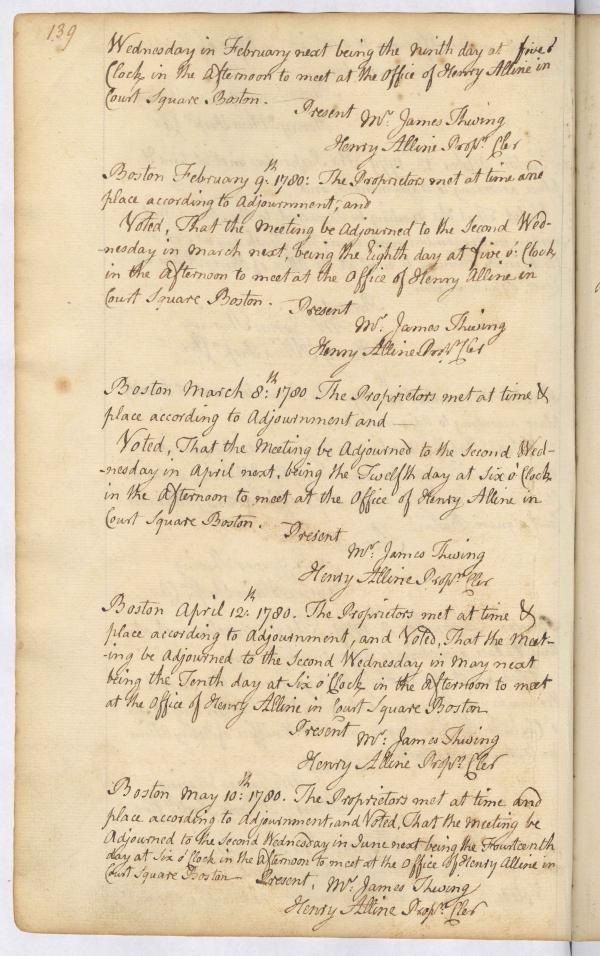 139
Wednesday in February next being the ninth day at five o'
Clock in the Afternoon to meet at the Office of Henry Alline in
Court Square Boston.
Present Mr. James Thwing
Henry Alline Propr. Cler
Boston February 9th: 1780: The Proprietors met at time and
place according to Adjournment, and
Voted, That the Meeting be Adjourned to the Second Wed-
-nesday in march next, being the Eighth day at five, o': Clock
in the Afternoon to meet at the Office of Henry Alline in
Court Square Boston.
Present
Mr. James Thwing
Henry Alline Propr. Cler
Boston March 8th: 1780 The Proprietors met at time &
place according to Adjournment and —
Voted, That the Meeting be Adjourned to the Second Wed-
-nesday in April next, being the Twelfth day at Six o' Clock
in the Afternoon to meet at the Office of Henry Alline in
Court Square Boston.
Present
Mr. James Thwing
Henry Alline Propr. Cler
Boston April 12th: 1780. The Proprietors met at time &
place according to Adjournment, and Voted, That the Meet-
-ing be Adjourned to the Second Wednesday in May next
being the Tenth day at Six o' Clock in the Afternoon to meet
at the Office of Henry Alline in Court Square Boston
Present Mr: James Thwing
Henry Alline Propr. Cler
Boston May 10th: 1780. The Proprietors met at time and
place according to Adjournment, and Voted, That the Meeting be
Adjourned to the Second Wednesday in June next being the Fourteenth
day at Six o' Clock in the Afternoon to meet at the Office of Henry Alline in
Court Square Boston — Present, Mr. James Thwing
Henry Alline Propr. Cler